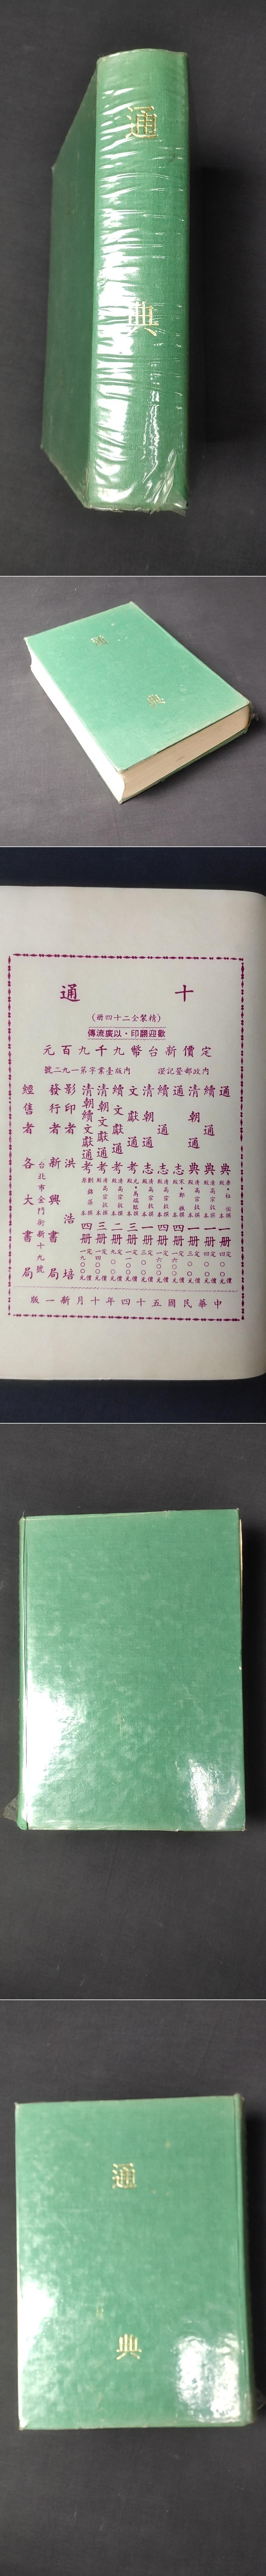 通
典
通
典
十通
（精裝全二十四冊）
歡迎翻印・以廣流傳
定價新台幣九千九百元
內政部登記證 內版臺業字第一九二號
通典一冊
續通典一冊
清朝通典一冊
通志四冊
續通志四冊
清朝通志一冊
文獻通考三冊
續文獻通考二冊
清朝文獻通考三冊
清朝續文獻通考四冊
影印者 洪浩培
發行者 新興書局
台北市金門街新十九號
經售者 各大書局
中華民國五十四年十月新一版
通
典